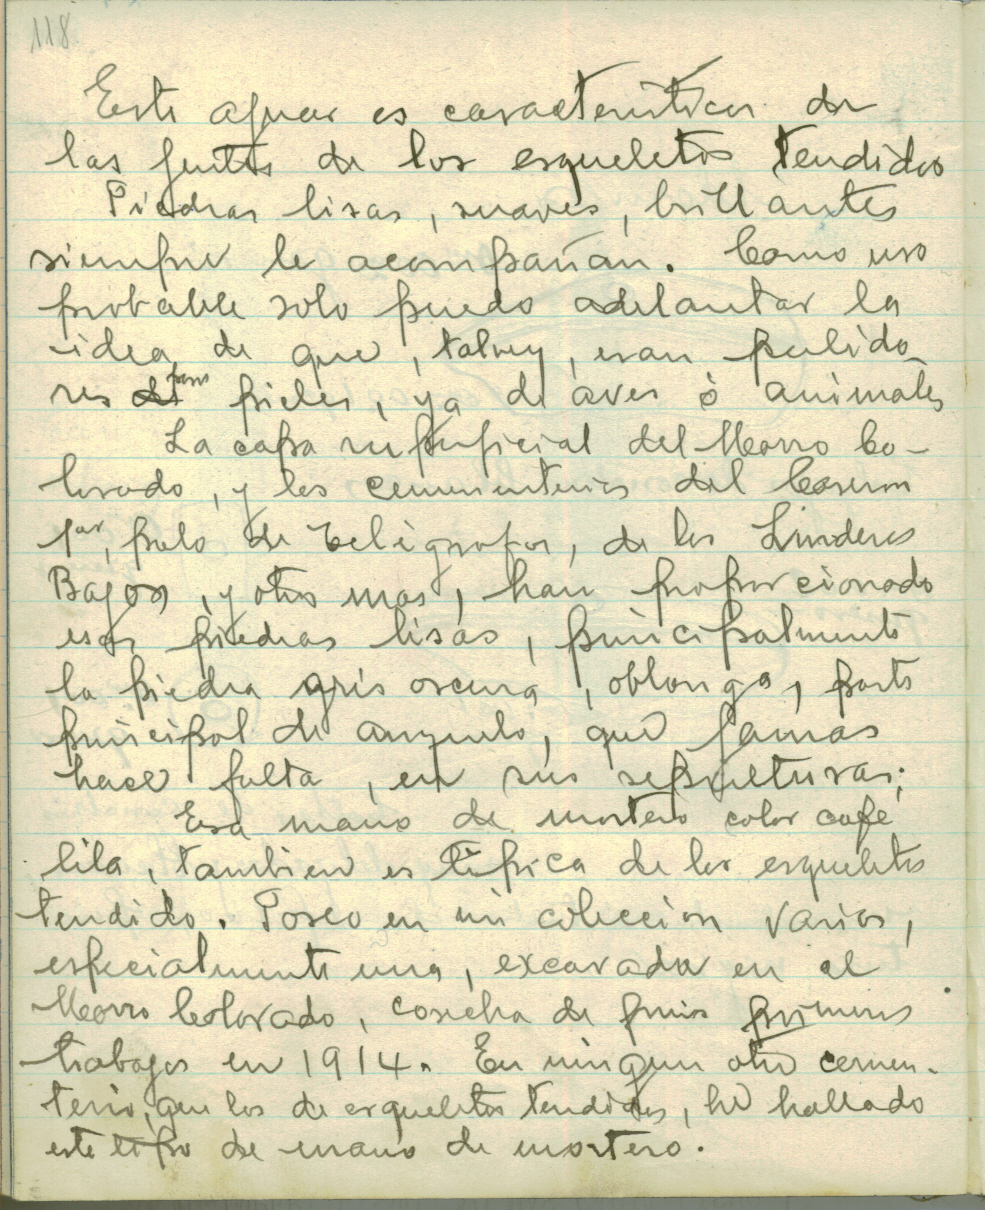 118
Este ajuar es característico de
las gentes de los esqueletos tendidos
Piedras lisas, suaves, brillantes
siempre le acompañan. Como uso
probable solo puedo adelantar la
idea de que, talvez, eran pulido_
res para pieles, ya de aves ó animales
La capa superficial del Morro Co-
lorado, y los cementerios del Caserón
1er, palo de telégrafos, de los Linderos
Bajos, y otros mas, han proporcionado
esas piedras lisas, principalmente
la piedra gris oscura, oblonga, parte
principal de anzuelo, que jamas
hace falta, en sus sepulturas;
Esa mano de mortero color café
lila, tambien es típica de los esqueletos
tendido. Poseo en mi coleccion varios,
especialmente una, excavada en el
Morro Colorado, de primeros
trabajos en 1914. En ningun otro cemen-
terio, que los de esqueletos tendidos, hé hallado
este tipo de mano de mortero.